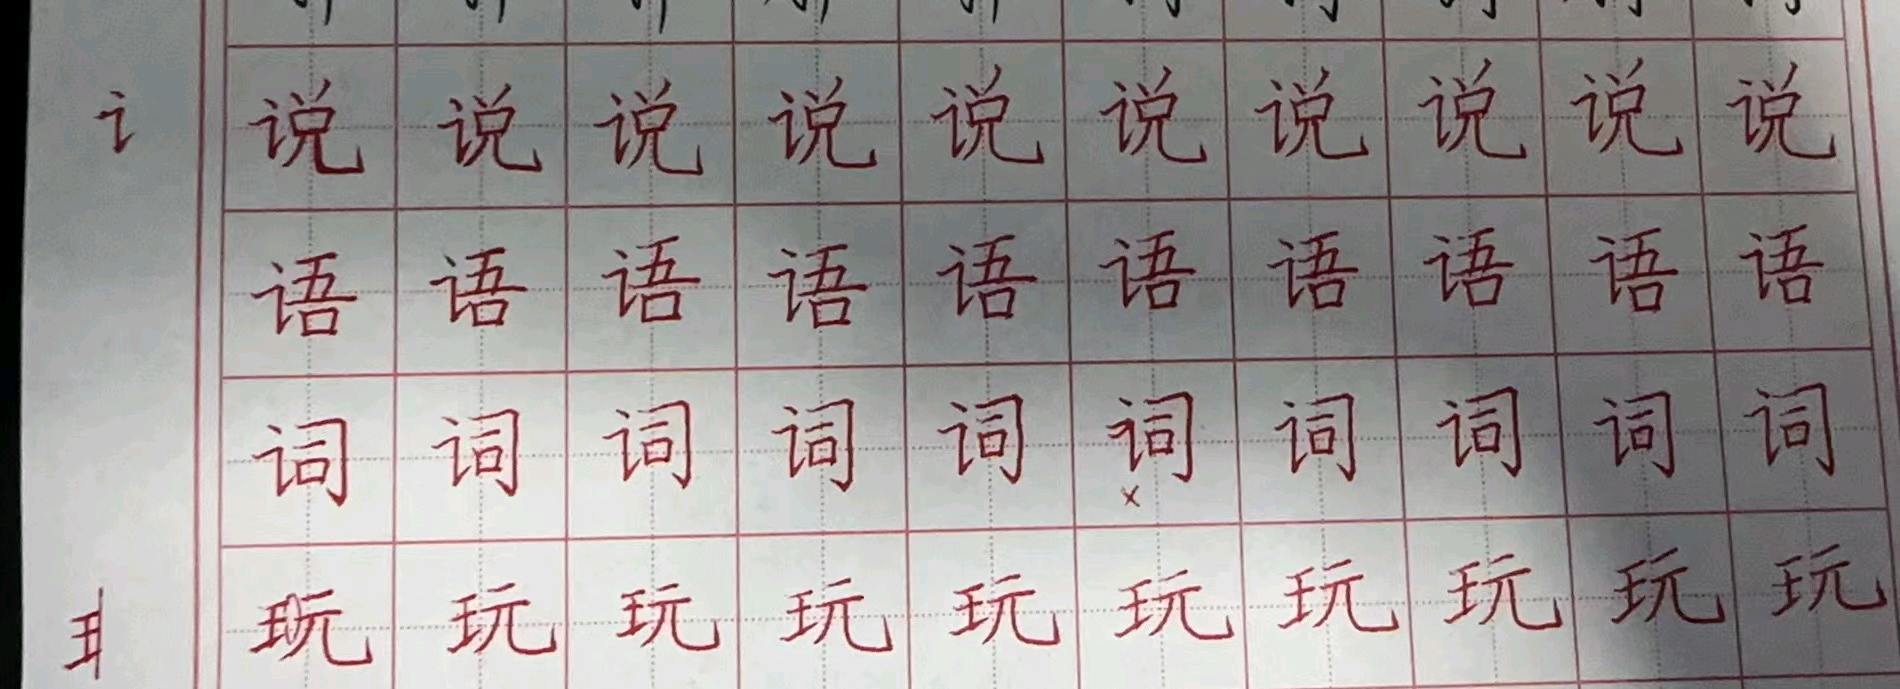 讠 说 说 说 说 说 说 说 说 说 说
语 语 语 语 语 语 语 语 语 语
词 词 词 词 词 词 词 词 词 词
×
王 玩 玩 玩 玩 玩 玩 玩 玩 玩 玩